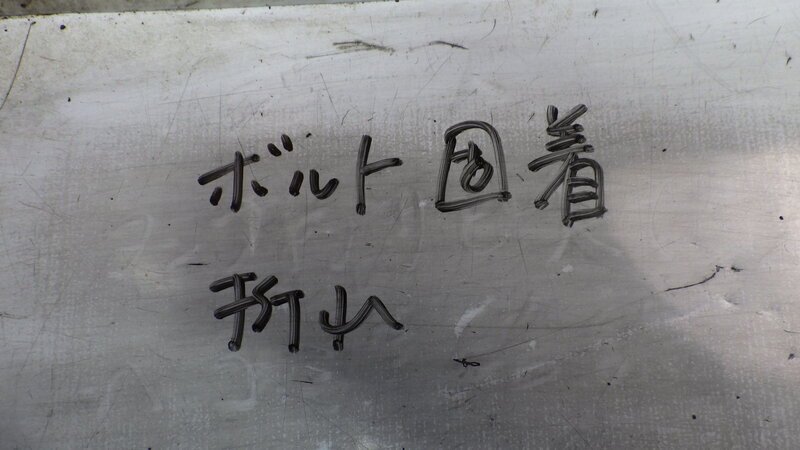 ボルト固着
折山